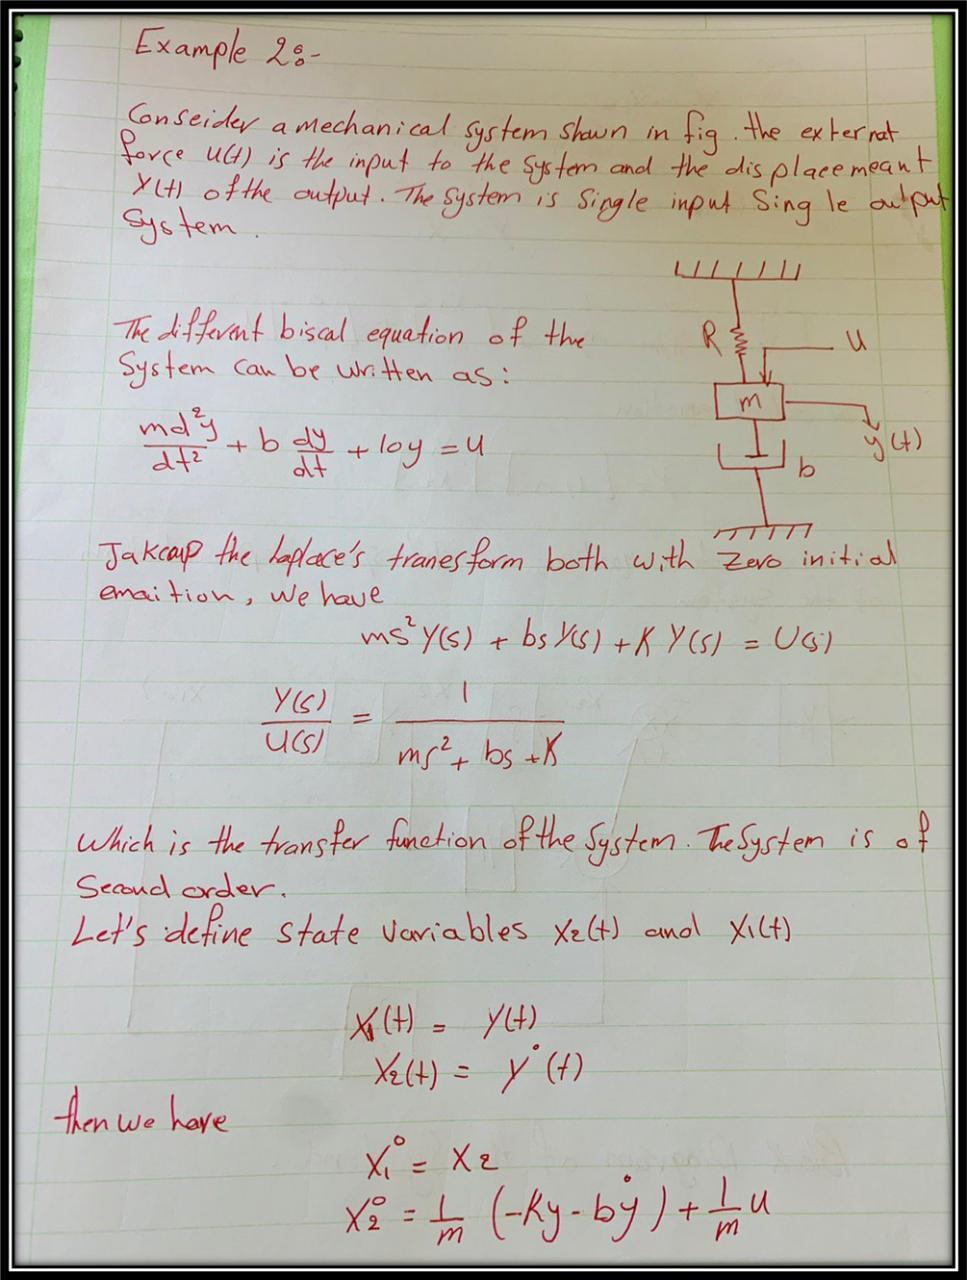 Example 2:-
Conseider a mechanical system shown in fig. the external
force u(t) is the input to the system and the displacemeant
Y(t) of the output. The system is Single input Single output
System.
The different biscal equation of the
System can be written as:
md²y/dt² + b dy/dt + loy = u
R
u
m
y(t)
b
the laplace's transform both with Zero initial
emaition, we have
ms²Y(s) + bsY(s) + K Y(s) = U(s)
Y(s)/U(s) = 1/(ms² + bs + K)
Which is the transfer function of the System. The System is of
Second order.
Let's define state variables X₂(t) and X₁(t)
X₁(t) = Y(t)
X₂(t) = Ẏ(t)
then we have
Ẋ₁ = X₂
Ẋ₂ = 1/m (-Ky - bẏ) + 1/m u